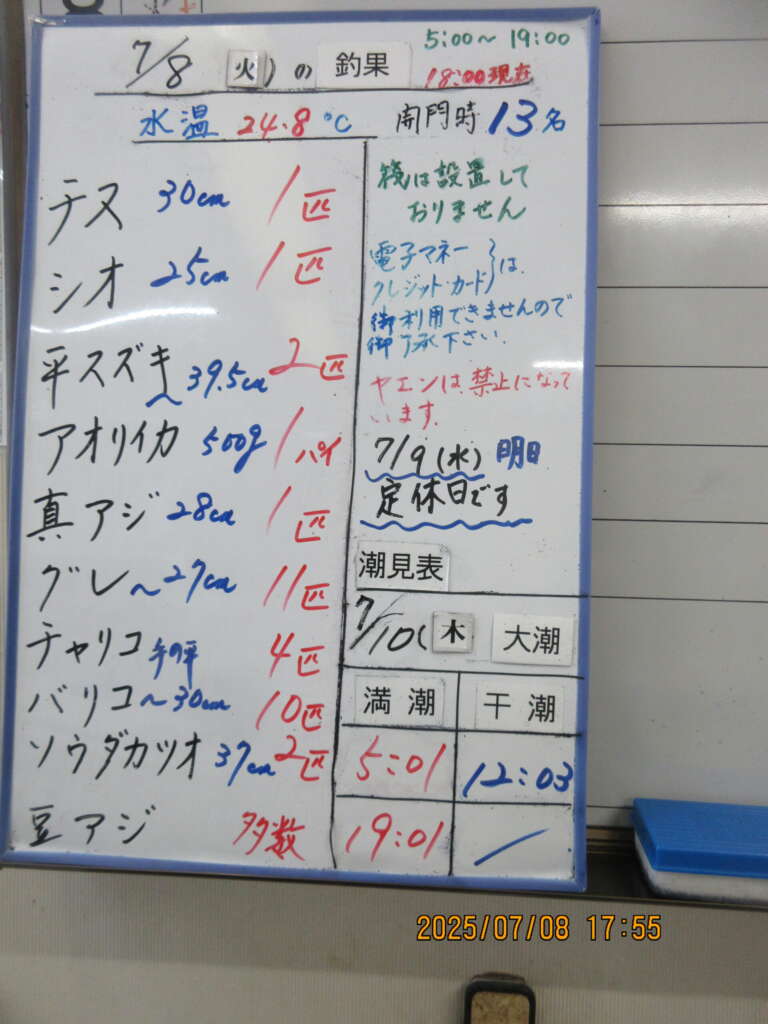 7/8(火)の 釣果
5:00〜19:00
18:00現在
水温 24.8℃ 開門時 13名
チヌ 30cm 1匹
シオ 25cm 1匹
平スズキ 〜39.5cm 2匹
アオリイカ 500g 1パイ
真アジ 28cm 1匹
グレ 〜27cm 11匹
チャリコ 手の平 4匹
バリコ 〜30cm 10匹
ソウダカツオ 37cm 2匹
豆アジ 多数
筏は設置して
おりません
電子マネー
クレジット・カード}は
御利用できませんので
御了承下さい.
ヤエンは禁止になって
います.
7/9(水) 明日
定休日です
潮見表
7/10(木) 大潮
満潮 干潮
5:01 12:03
19:01 /
2025/07/08 17:55